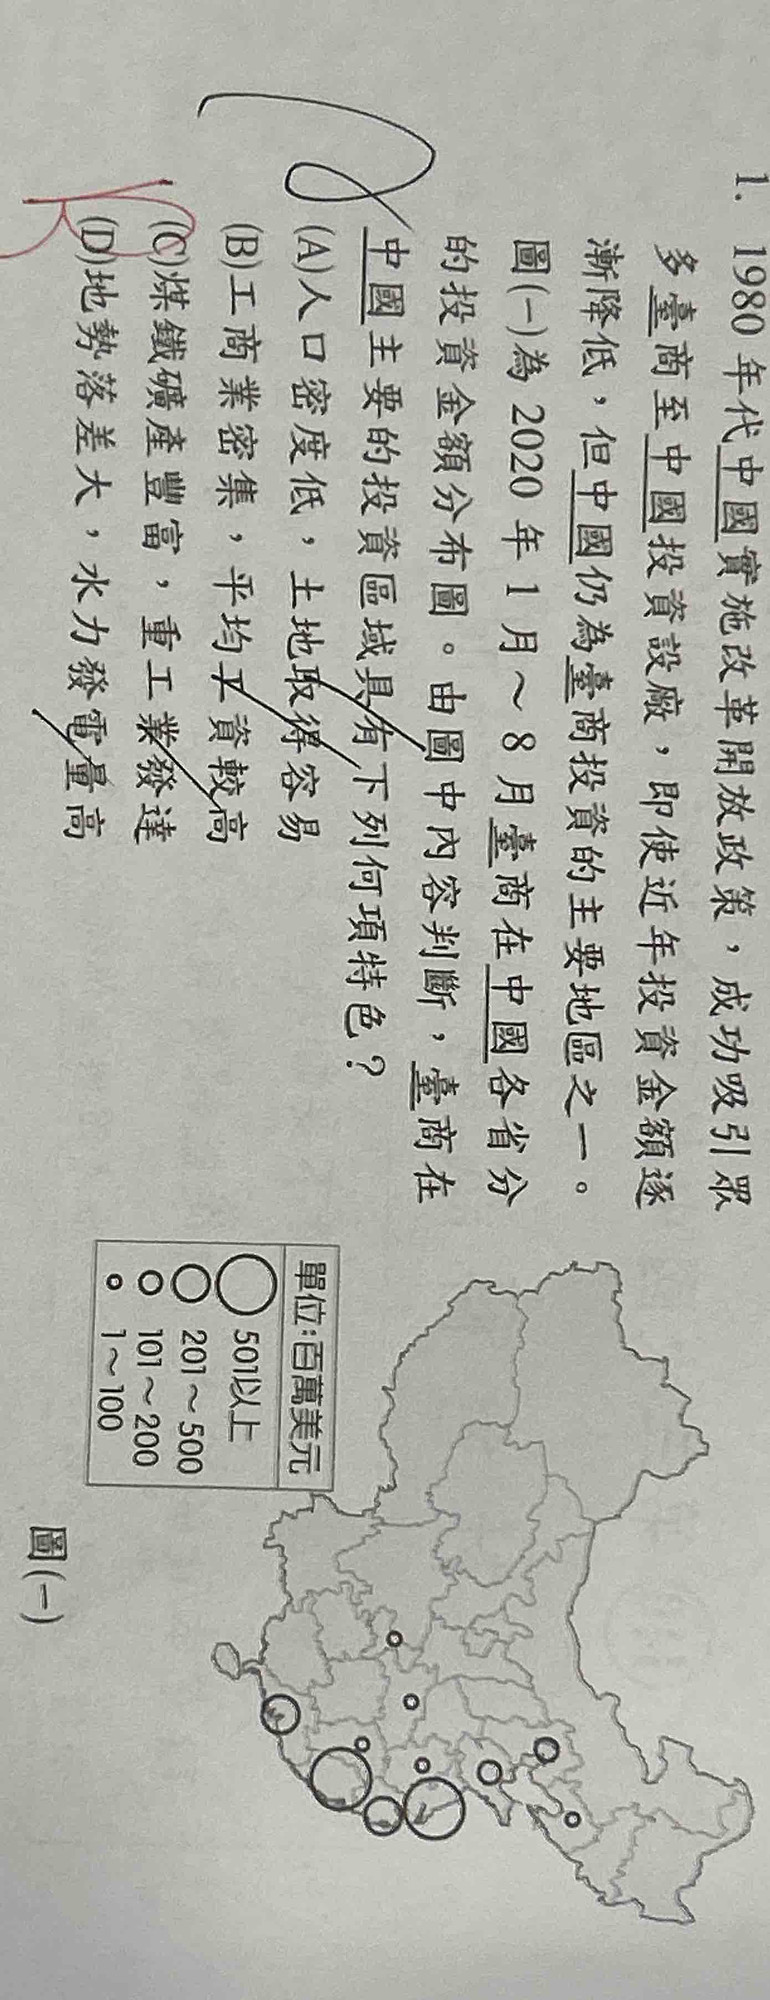 1. 1980 年代中國實施改革開放政策，成功吸引眾
多臺商至中國投資設廠，即使近年投資金額逐
漸降低，但中國仍為臺商投資的主要地區之一。
圖(一)為 2020 年 1 月～8 月臺商在中國各省分
的投資金額分布圖。由圖中內容判斷，臺商在
中國主要的投資區域具有下列何項特色？
(A)人口密度低，土地取得容易
(B)工商業密集，平均工資較高
(C)煤鐵礦產豐富，重工業發達
(D)地勢落差大，水力發電量高
單位：百萬美元
501以上
201～500
101～200
1～100
圖(一)